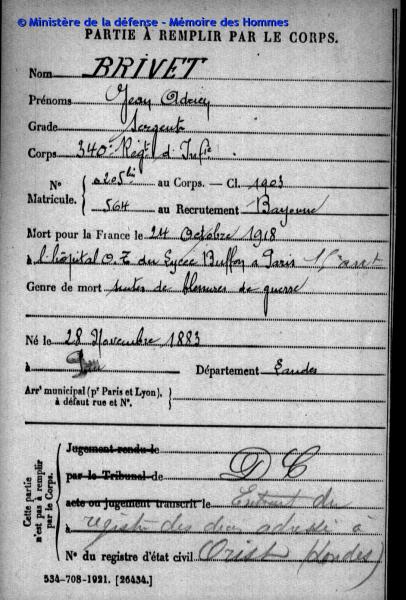 © Ministère de la défense - Mémoire des Hommes
PARTIE À REMPLIR PAR LE CORPS.
Nom BRIVET
Prénoms Jean
Grade Sergent
Corps 340e Regt d'Infie
N° 0205bis au Corps. - Cl. 1903
Matricule. 564 au Recrutement Bayonne
Mort pour la France le 24 Octobre 1918
à l'hôpital O.7. du Lycée Buffon à Paris 15e arrt
Genre de mort suites de blessures de guerre
Né le 28 Novembre 1883
à Département Landes
Arrt municipal (pr Paris et Lyon),
à défaut rue et N°.
Cette partie
n'est pas à remplir
par le Corps.
Jugement rendu le
par le Tribunal de D C
acte ou jugement transcrit le Extrait du
à registre des adressé à
N° du registre d'état civil Orist (Landes)
534-708-1921. [26434.]